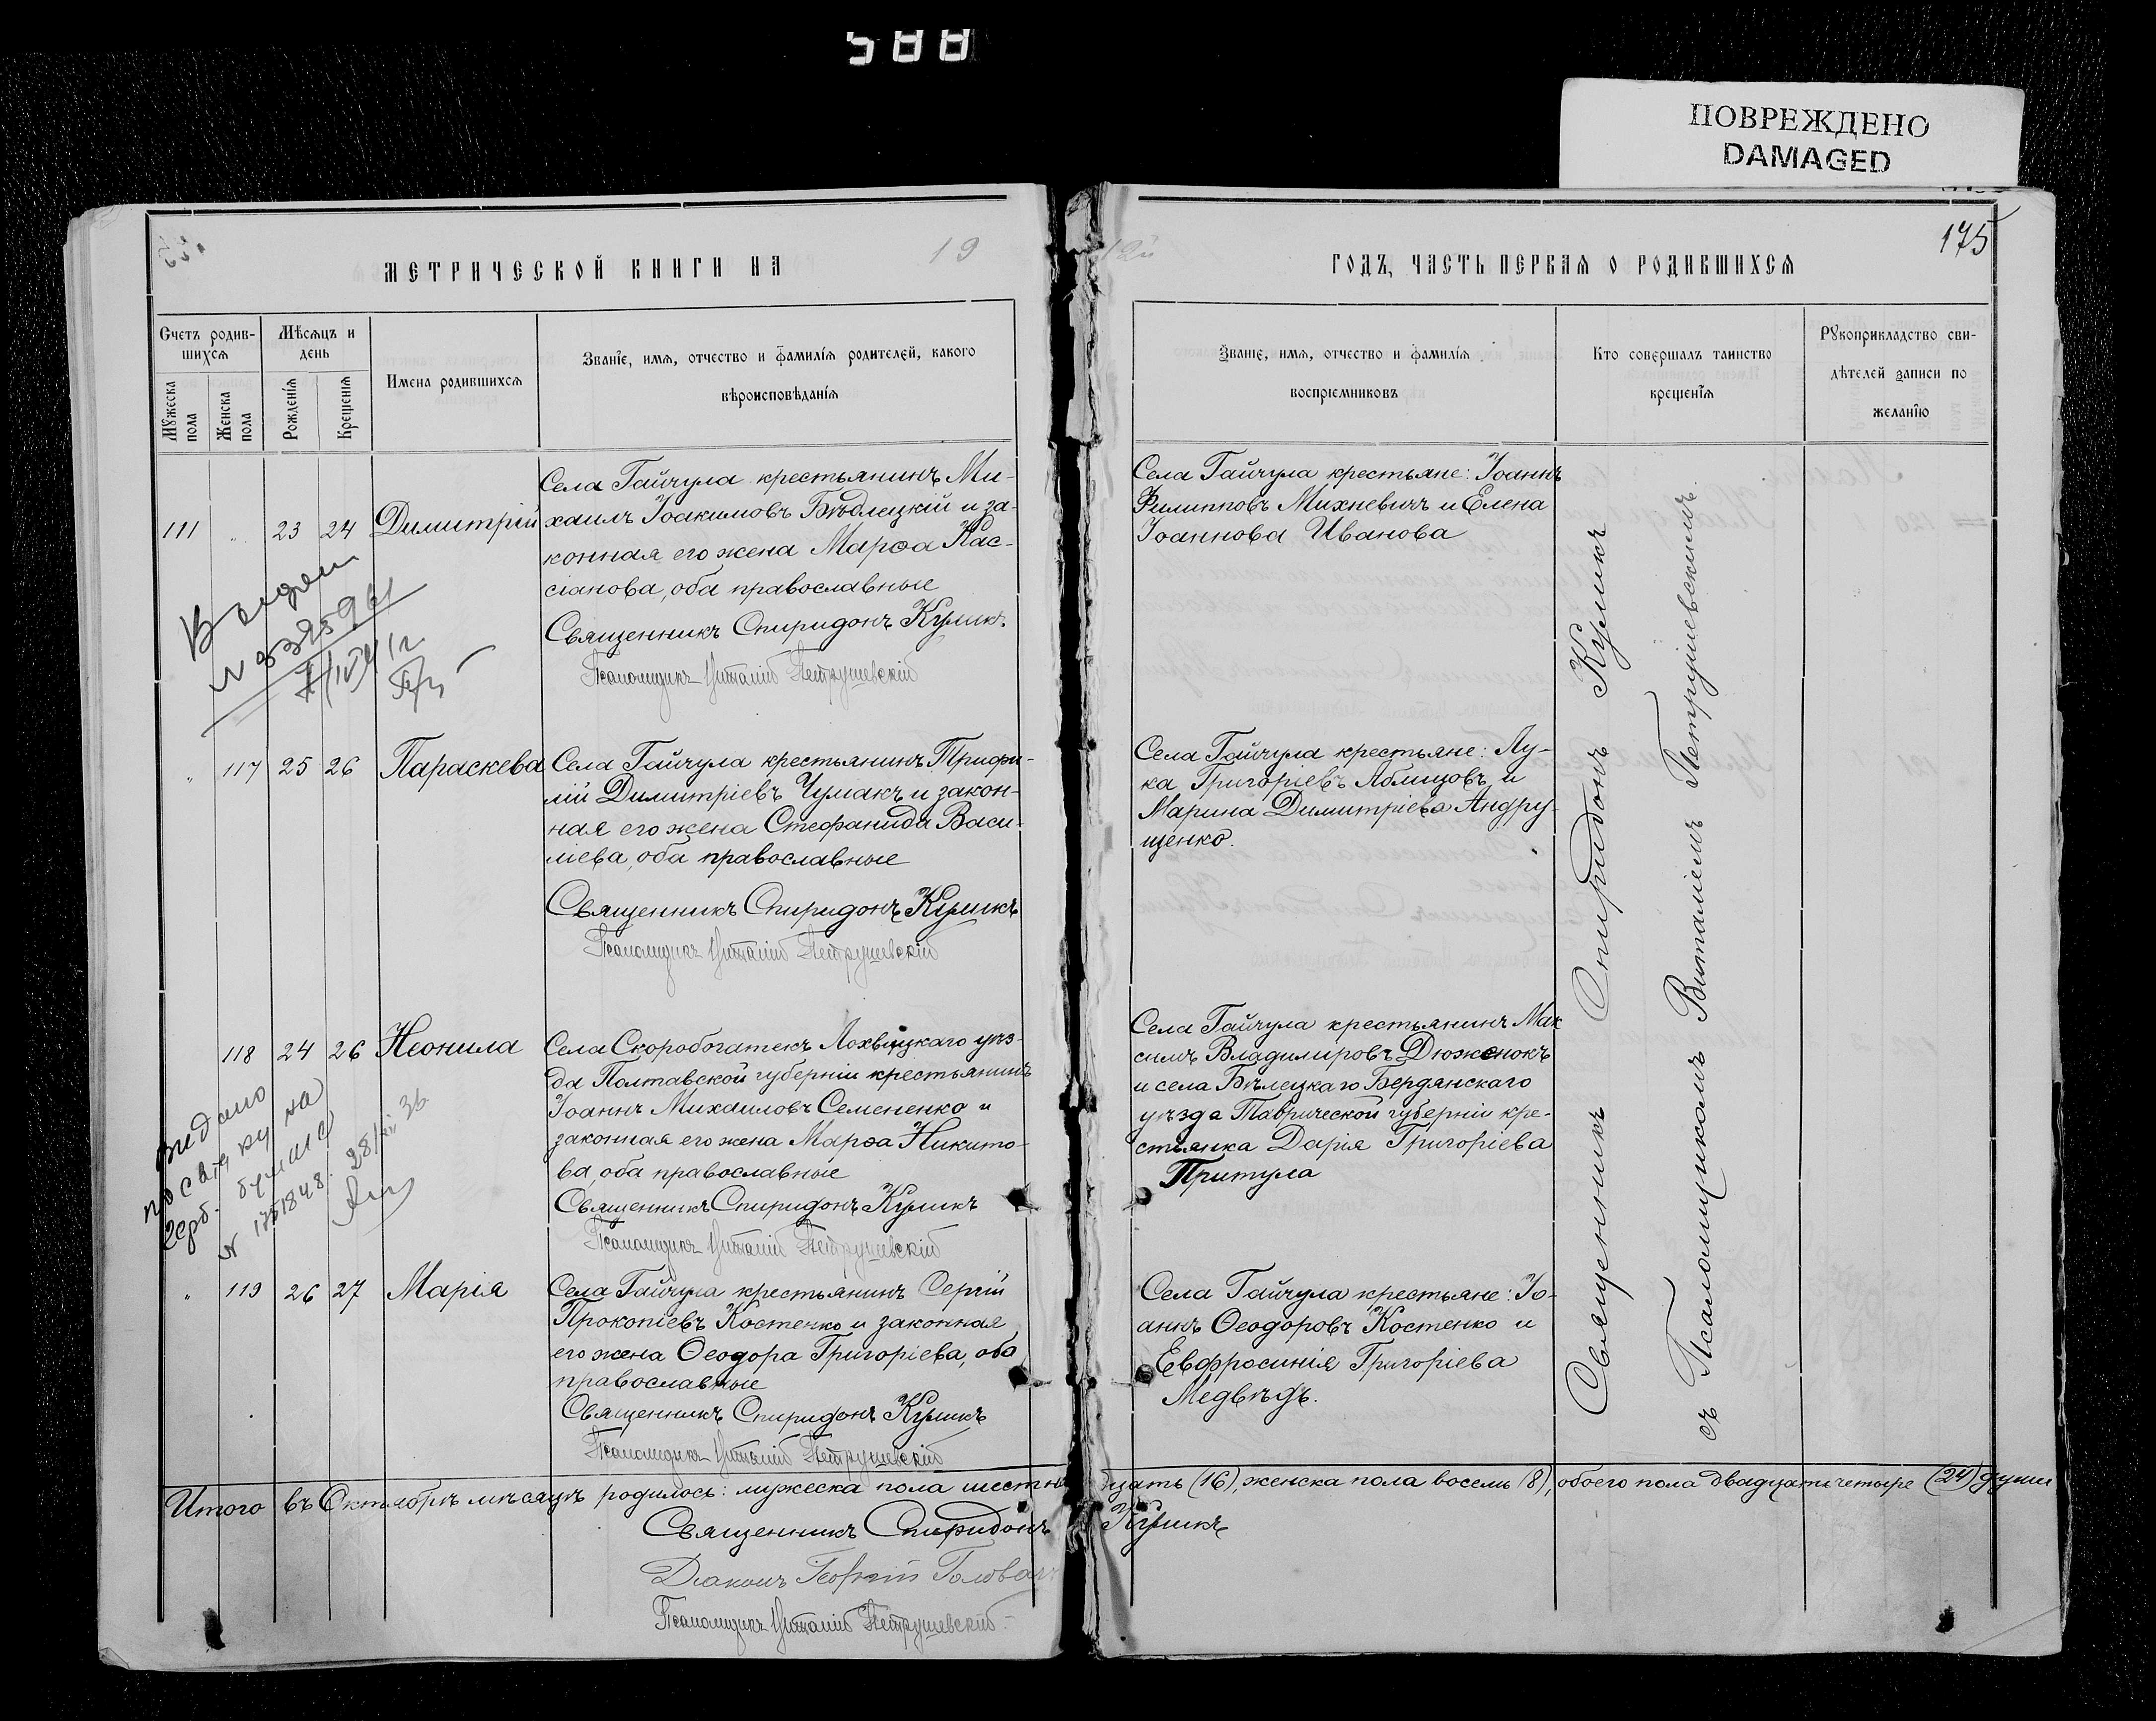 588
ПОВРЕЖДЕНО
DAMAGED
175
МЕТРИЧЕСКОЙ КНИГИ НА 19
ГОДЪ, ЧАСТЬ ПЕРВАЯ О РОДИВШИХСЯ
Счетъ родив-
шихся
Мѣсяцъ и
день
Мужеска
пола
Женска
пола
Рожденія
Крещенія
Имена родившихся
Званіе, имя, отчество и фамилія родителей, какого
вѣроисповѣданія
Званіе, имя, отчество и фамилія
воспріемниковъ
Кто совершалъ таинство
крещенія
Рукоприкладство сви-
дѣтелей записи по
желанію
111 " 23 24 Димитрій
Села Гайчула крестьянинъ Ми-
хаилъ Іоакимовъ Бѣлецкій и за-
конная его жена Марѳа Кас-
сіанова, оба православные
Священникъ Спиридонъ Куликъ
Псаломщикъ Виталій Петрушевскій
Села Гайчула крестьяне: Іоаннъ
Филипповъ Михневичъ и Елена
Іоаннова Иванова
" 117 25 26 Параскева
Села Гайчула крестьянинъ Трифи-
лій Димитріевъ Чумакъ и закон-
ная его жена Стефанида Васи-
ліева, оба православные
Священникъ Спиридонъ Куликъ
Псаломщикъ Виталій Петрушевскій
Села Гайчула крестьяне: Лу-
ка Григоріевъ Яблицовъ и
Марина Димитріева Андру-
щенко.
118 24 26 Неонила
Села Скоробогатекъ Лохвицкаго уѣз-
да Полтавской губерніи крестьянинъ
Іоаннъ Михаиловъ Семененко и
законная его жена Марѳа Никито-
ва, оба православные
Священникъ Спиридонъ Куликъ
Псаломщикъ Виталій Петрушевскій
Села Гайчула крестьянинъ Мак
симъ Владимировъ Дюженокъ
и села Бѣлецкаго Бердянскаго
уѣзда Таврической губерніи кре-
стьянка Дарія Григоріева
Притула
видано
на
герб. бумизі
№ 1751848. 28/XII 36
" 119 26 27 Марія
Села Гайчула крестьянинъ Сергій
Прокопіевъ Костенко и законная
его жена Ѳеодора Григоріева, оба
православные
Священникъ Спиридонъ Куликъ
Псаломщикъ Виталій Петрушевскій
Села Гайчула крестьяне: Іо-
аннъ Ѳеодоровъ Костенко и
Евфросинія Григоріева
Медвѣдь.
Священникъ Спиридонъ Куликъ
съ Псаломщикомъ Виталіемъ Петрушевскимъ.
Итого въ Октябрѣ мѣсяцѣ родилось: мужеска пола шестнадцать (16), женска пола восемь (8), обоего пола двадцать четыре (24) души
Священникъ Спиридонъ Куликъ
Діаконъ Георгій Голован
Псаломщикъ Виталій Петрушевскій